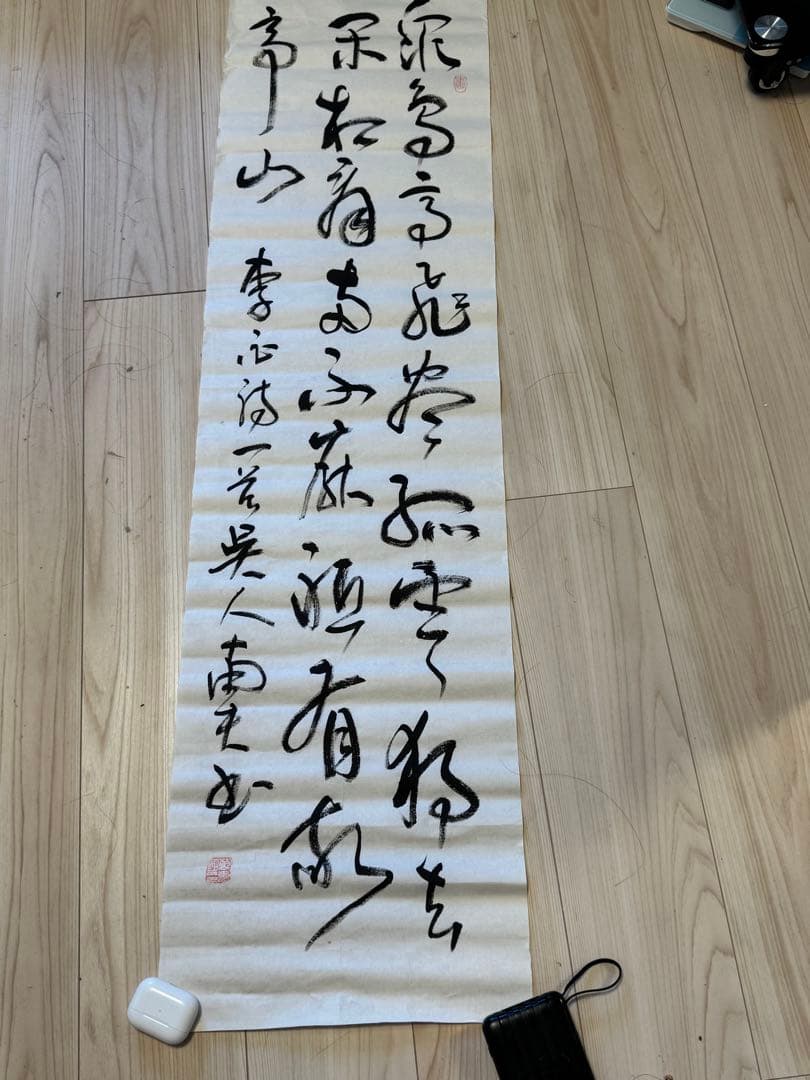 眾鳥高飛盡孤雲獨去
閑相看兩不厭祗有敬
亭山 李白詩一首吳人南夫書